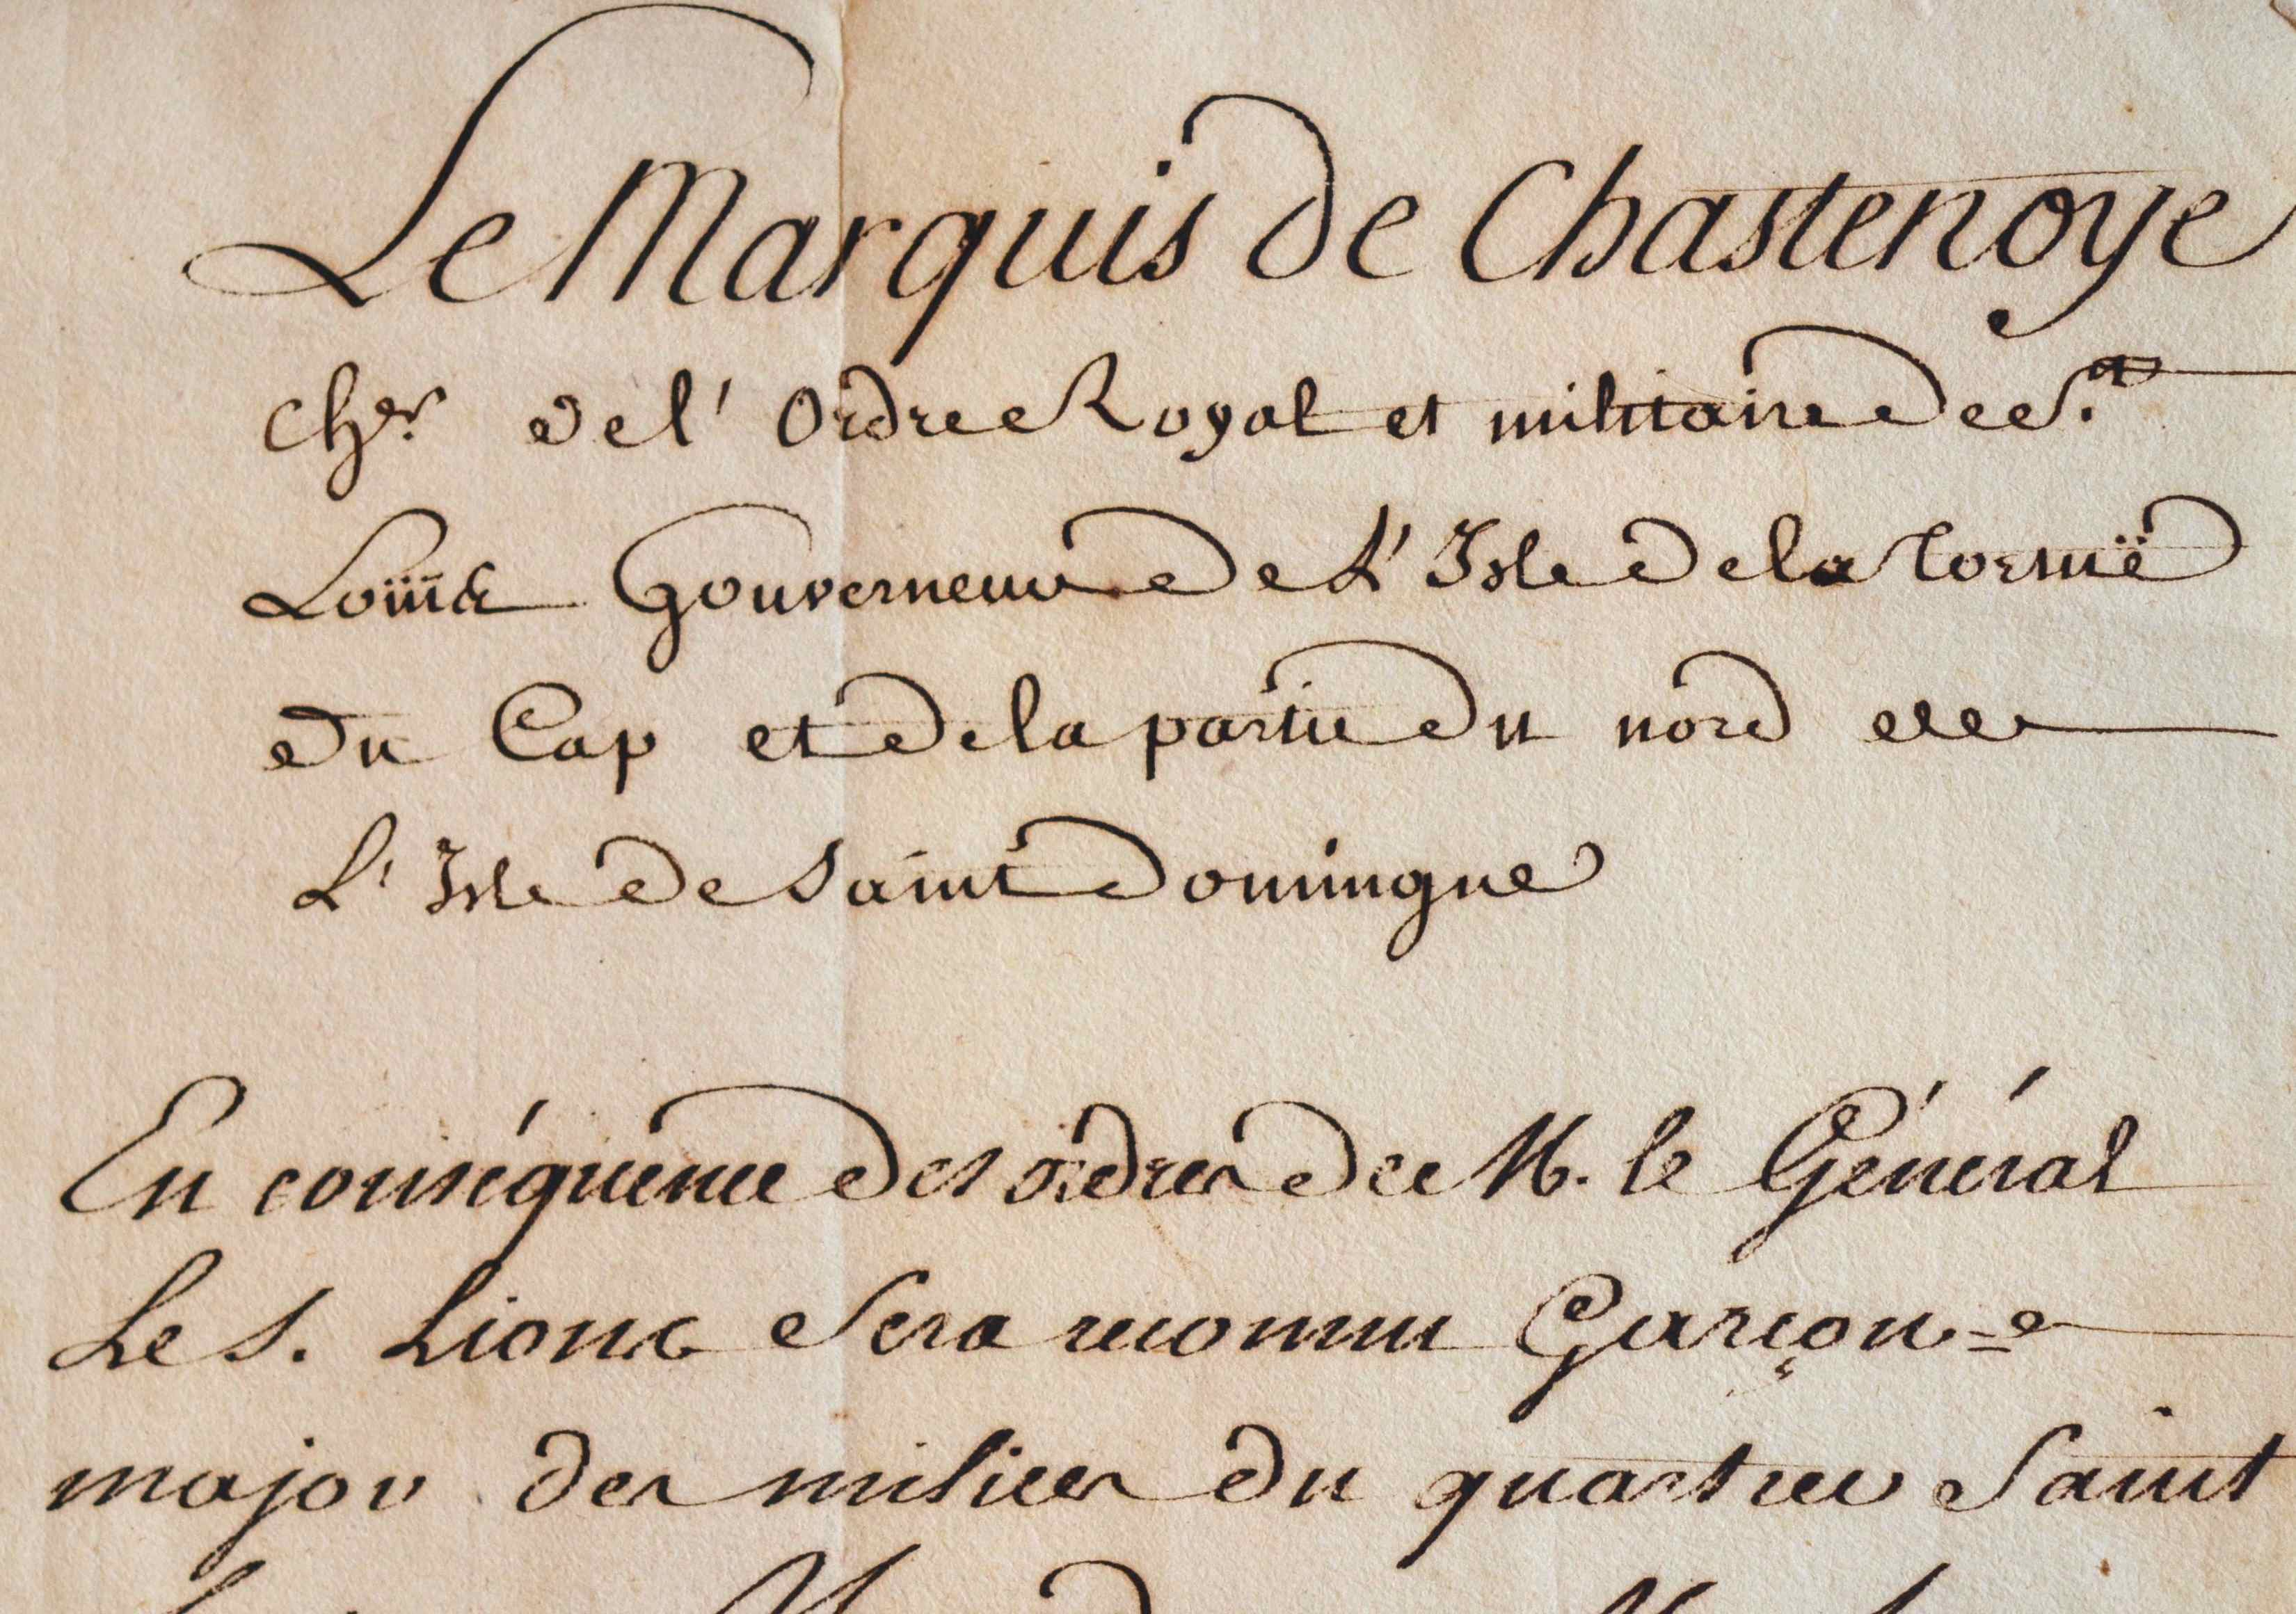 Le Marquis de Chastenoye
Cher. de l' Ordre Royal et militaire de St.
Loüis Gouverneur de L' Isle de la Tortuë
du Cap et de la partie du nord de
L' Isle de Saint Domingue
En conséquence des ordres de M. le Général
Le S. Sera reconnu Garçon =
major des milices du quartier Saint